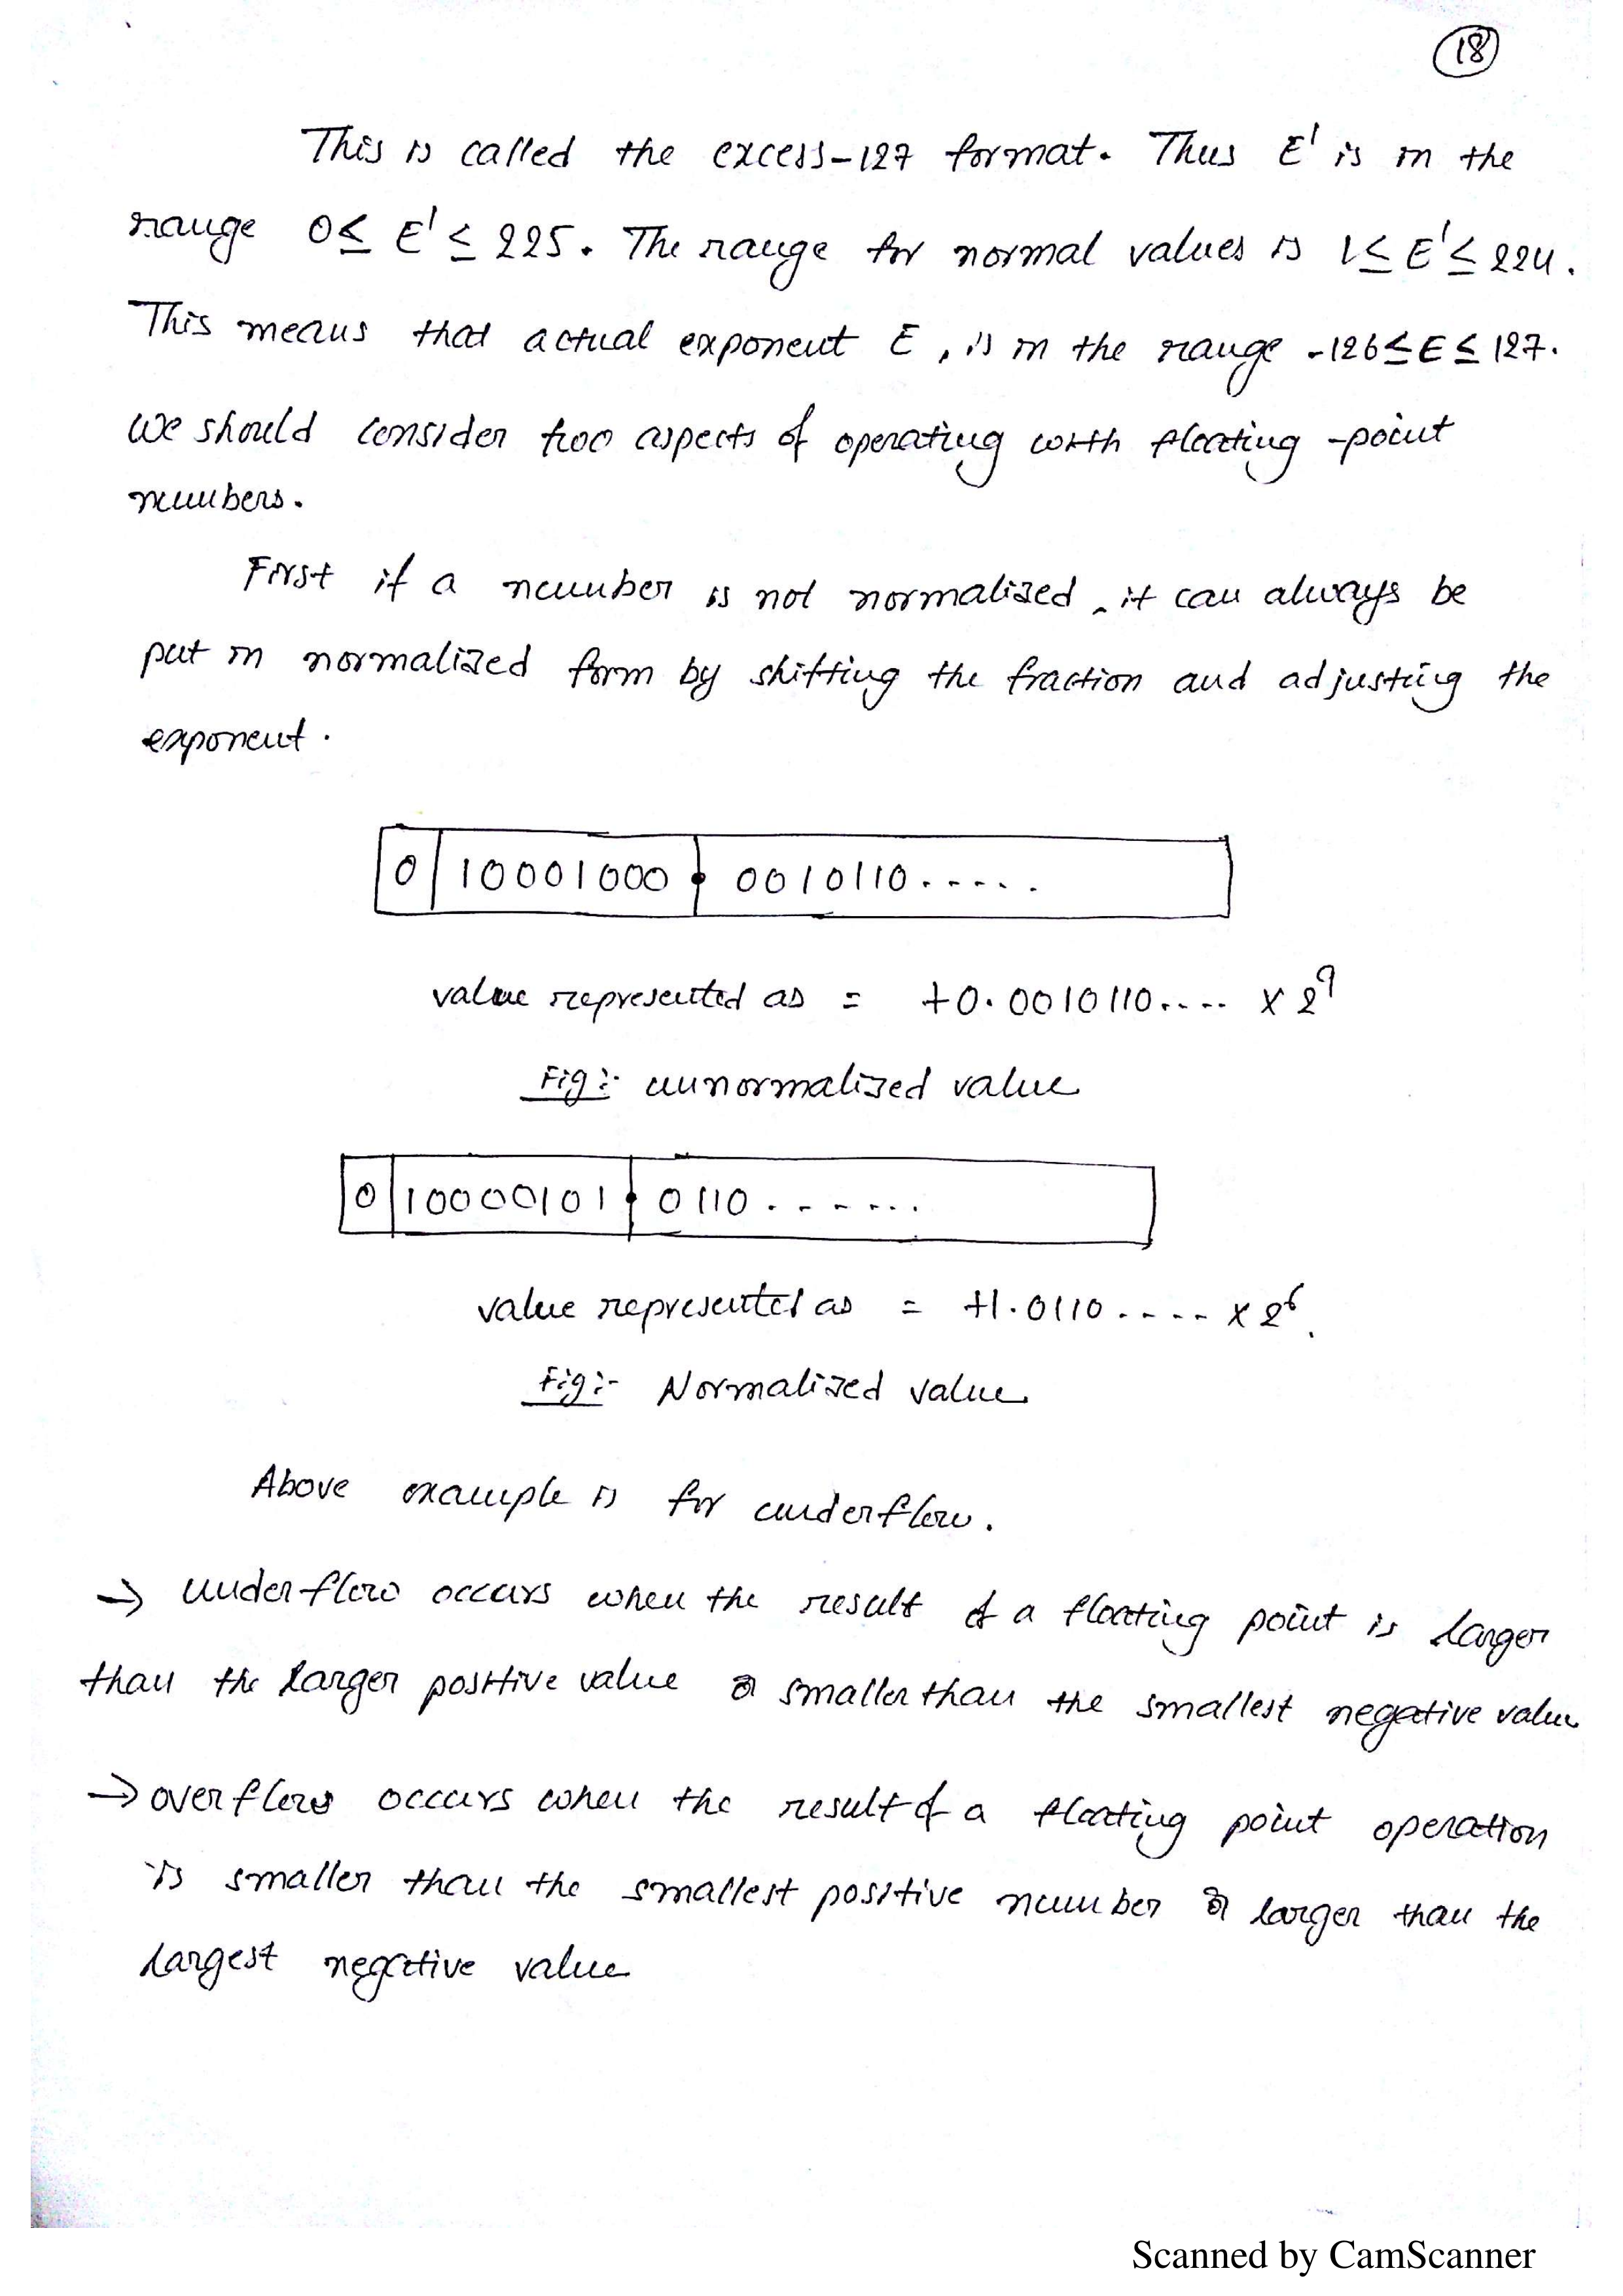 18
This is called the excess-127 format. Thus E' is in the
range 0 ≤ E' ≤ 225. The range for normal values is 1 ≤ E' ≤ 224.
This means that actual exponent E, is in the range -126 ≤ E ≤ 127.
We should consider two aspects of operating with floating-point
numbers.
First if a number is not normalized, it can always be
put in normalized form by shifting the fraction and adjusting the
exponent.
0 10001000 . 0010110......
value represented as = +0.0010110.... x 2^9
Fig:- unnormalized value
0 10000101 . 0110.......
value represented as = +1.0110..... x 2^6.
Fig:- Normalized value
Above example is for underflow.
→ underflow occurs when the result of a floating point is larger
than the larger positive value or smaller than the smallest negative value
→ overflow occurs when the result of a floating point operation
is smaller than the smallest positive number or larger than the
largest negative value
Scanned by CamScanner